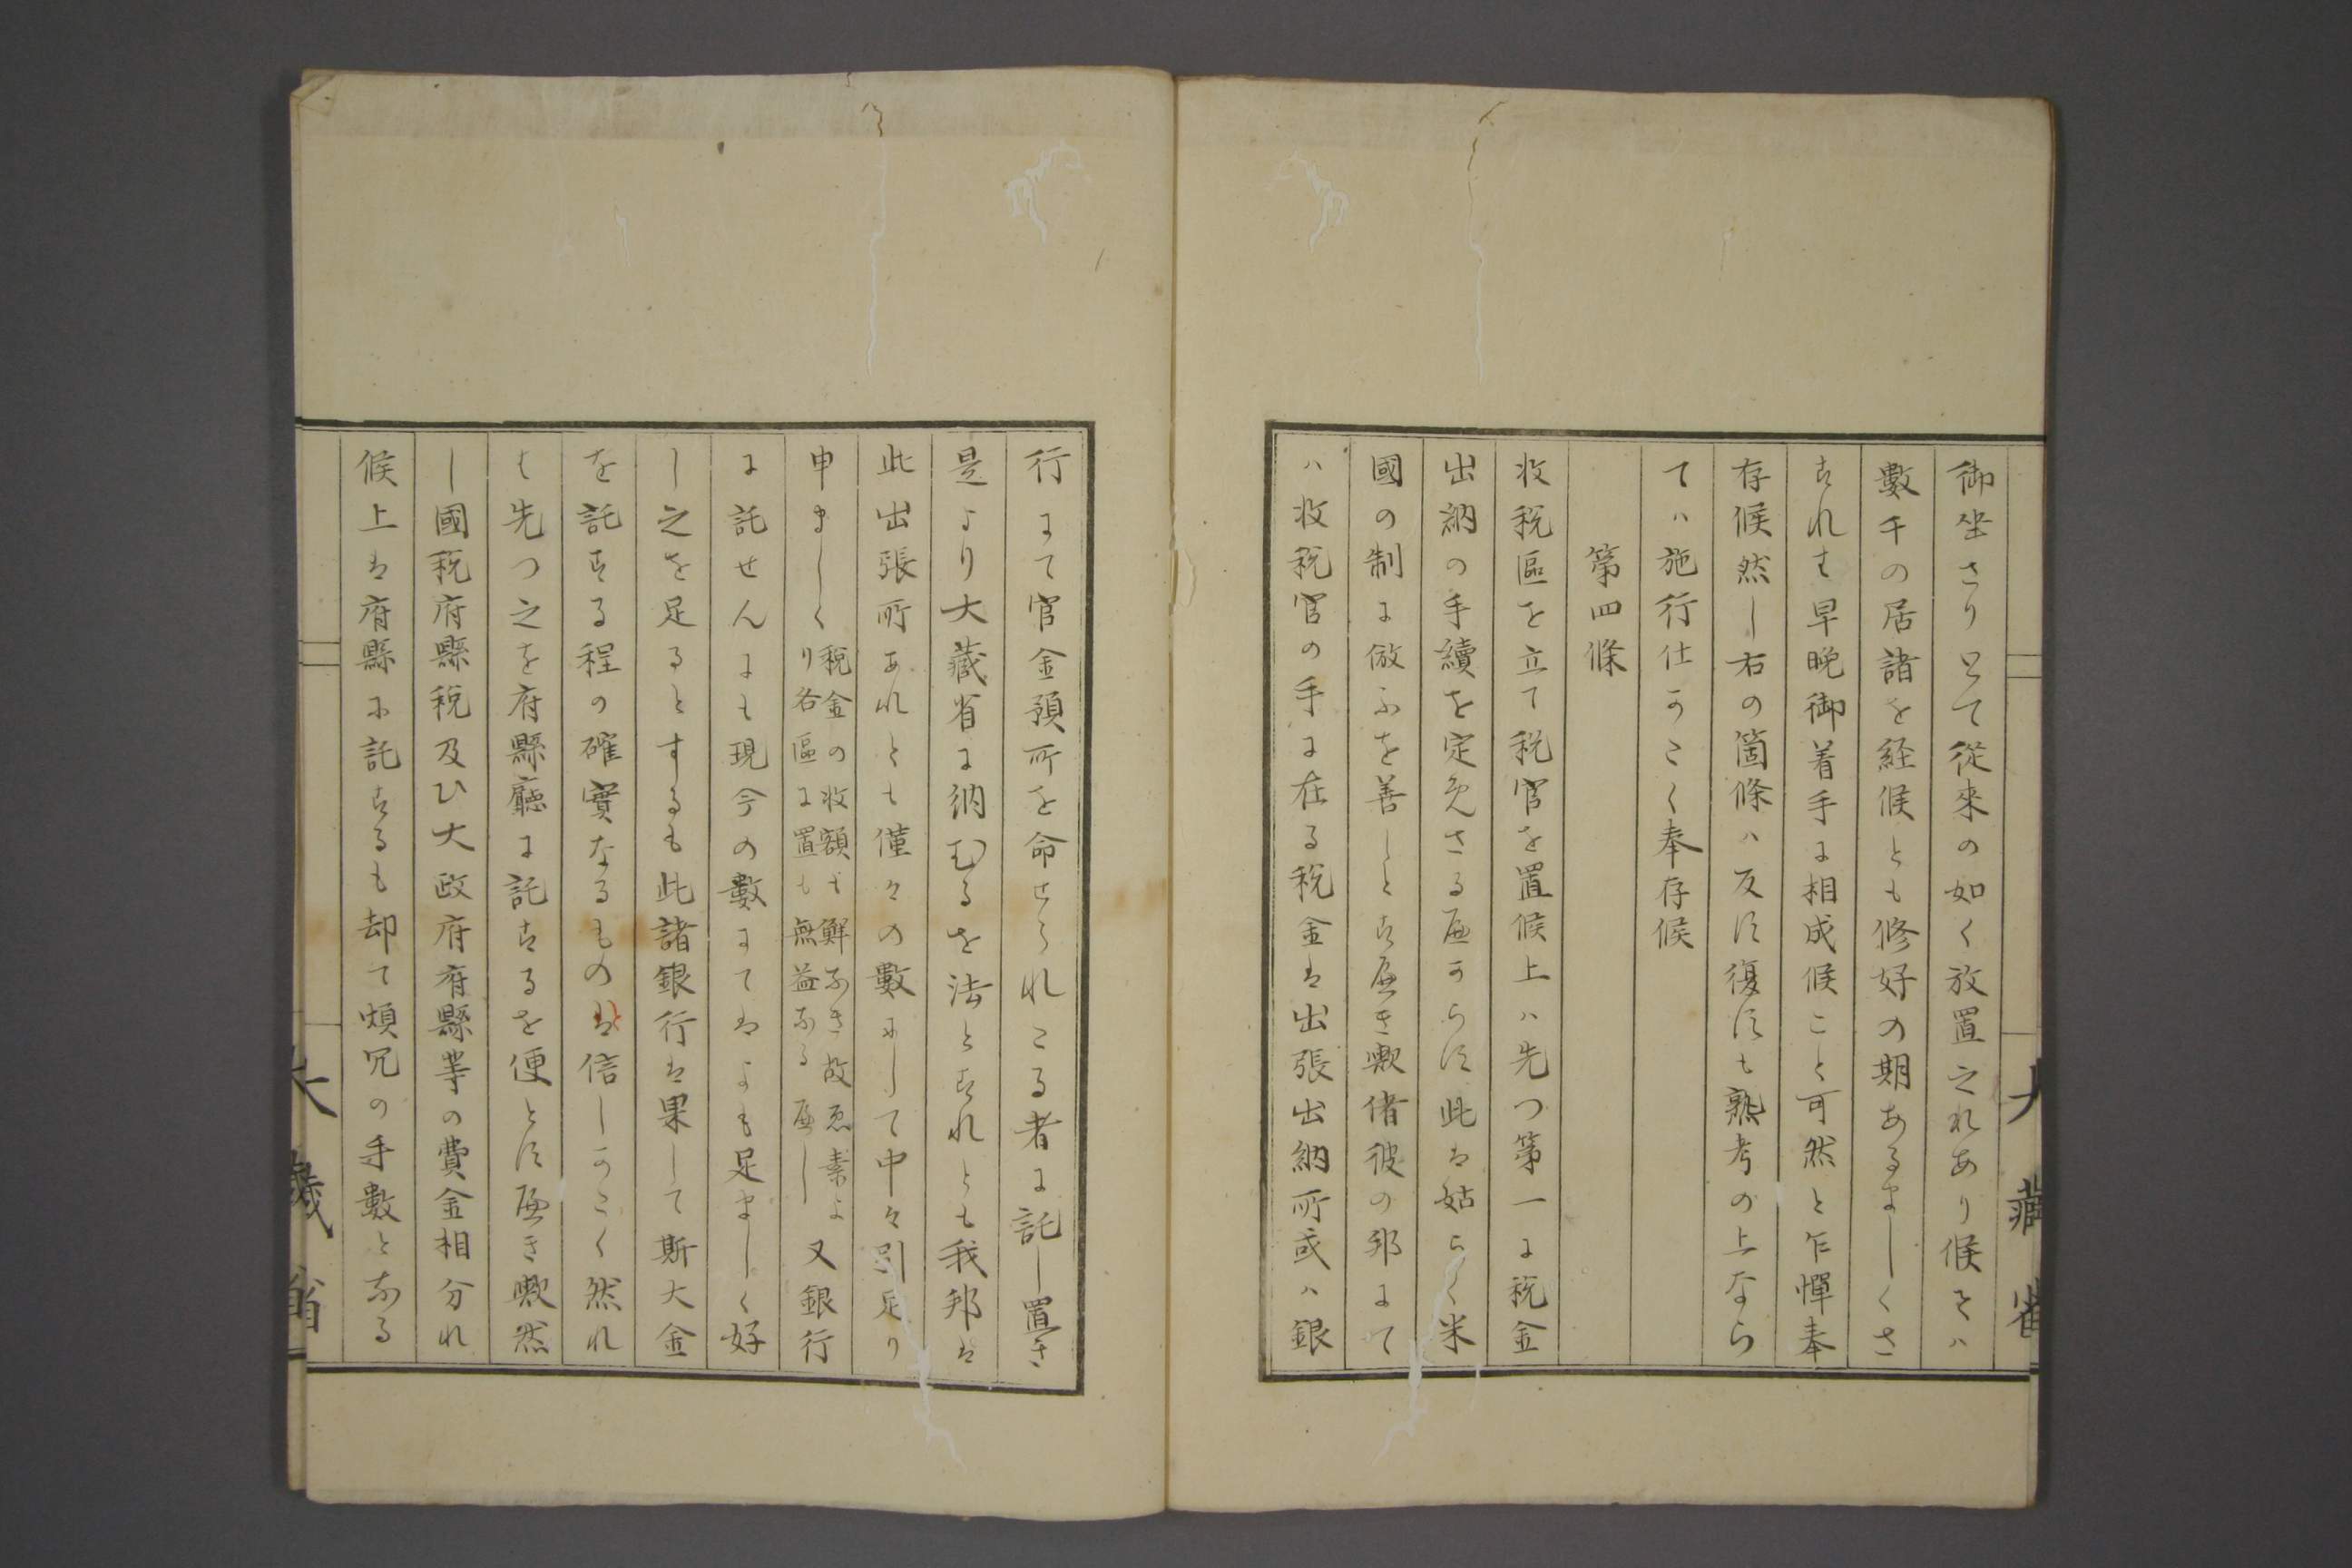 御坐さりとて從來の如く放置之れあり候そハ
數千の居諸を経候とも修好の期あるましくさ
すれは早晩御着手に相成候こと可然と乍憚奉
存候然し右の箇條ハ反す復すも熟考の上なら
てハ施行仕かたく奉存候
第四條
收税區を立て税官を置候上ハ先つ第一に税金
出納の手續を定めさる可からす此は姑らく米
國の制に倣ふを善しとすへき歟偖彼の邦にて
ハ收税官の手に在る税金は出張出納所或ハ銀
行にて官金預所を命せられたる者に託し置き
是より大藏省に納むるを法とすれとも我邦は
此出張所あれとも僅々の數にして中々引足り
申ましく税金の收額も鮮なき故悉素よ
り各區に置も無益なるへし又銀行
に託せんにも現今の數にてはよも足ましく好
し之を足るとするも此諸銀行は果して斯大金
を託する程の確實なるものは信しかたく然れ
は先つ之を府縣廳に託するを便とすへき歟然
し國税府縣税及ひ大政府府縣等の費金相分れ
候上は府縣に託するも却て煩冗の手數となる
大藏省
大藏省